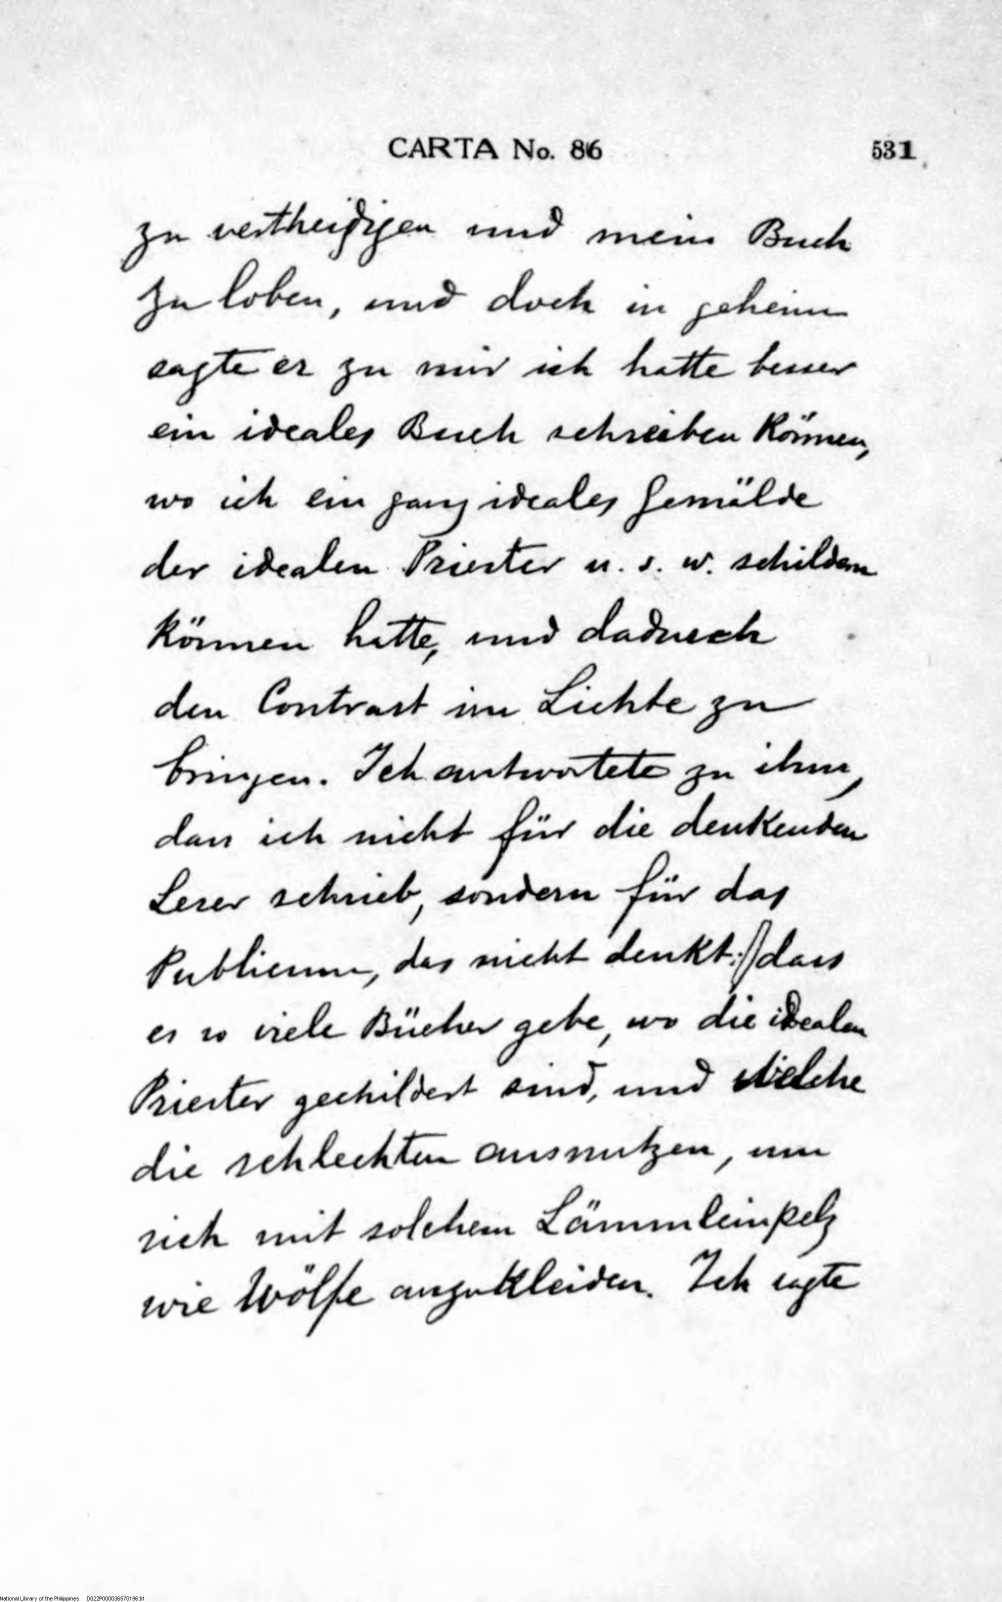 CARTA No. 86 531
zu vertheidigen und mein Buch
zu loben, und doch in geheim
sagte er zu mir ich hatte besser
ein ideales Buch schreiben können,
wo ich ein ganz ideales Gemälde
der idealen Priester u. s. w. schildern
können hatte, und dadurch
den Contrast im Lichte zu
bringen. Ich antwortete zu ihm,
dass ich nicht für die denkenden
Leser schrieb, sondern für das
Publicum, das nicht denkt: dass
es so viele Bücher gebe, wo die idealen
Priester geschildert sind, und welche
die schlechten ausnutzen, um
sich mit solchem Lämmleinpelz
wie Wölfe anzukleiden. Ich sagte
National Library of the Philippines